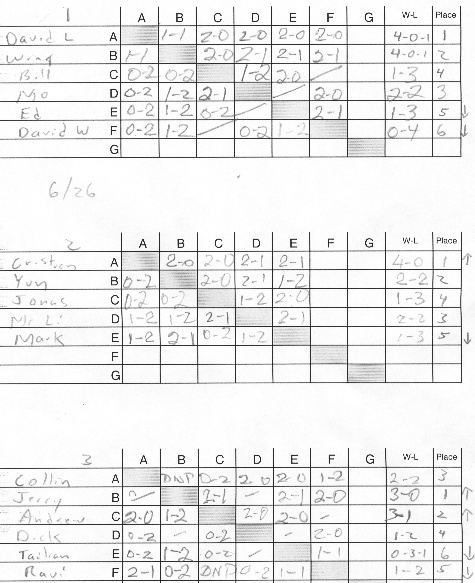 1 A B C D E F G W-L Place
David L A 1-1 2-0 2-0 2-0 2-0 4-0-1 1
Wing B 1-1 2-0 2-1 2-1 2-1 4-0-1 2
Bill C 0-2 0-2 1-2 2-0 / 1-3 4
Mo D 0-2 1-2 2-1 / 2-0 2-2 3
Ed E 0-2 1-2 0-2 / 2-1 1-3 5 ↓
David W F 0-2 1-2 / 0-2 1-2 0-4 6 ↓
G
6/26
2 A B C D E F G W-L Place
Cristian A 2-0 2-0 2-1 2-1 4-0 1 ↑
Yun B 0-2 2-0 2-1 1-2 2-2 2
Jonas C 0-2 0-2 1-2 2-0 1-3 4
Mr Li D 1-2 1-2 2-1 2-1 2-2 3
Mark E 1-2 2-1 0-2 1-2 1-3 5 ↓
F
G
3 A B C D E F G W-L Place
Collin A DNP 0-2 2-0 2-0 1-2 2-2 3
Jerry B 2-1 - 2-1 2-0 3-0 1 ↑
Andrew C 2-0 1-2 2-0 2-0 - 3-1 2 ↑
Dick D 0-2 - 0-2 - 2-0 1-2 4
E 0-2 1-2 0-2 - 1-1 0-3-1 6 ↓
Ravi F 2-1 0-2 DNP 0-2 1-1 1-2 5 ↓